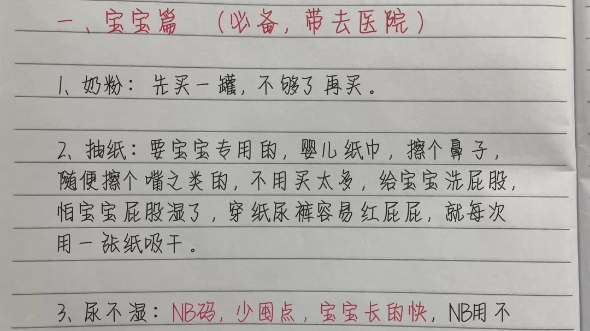 一、宝宝篇 (必备,带去医院)
1、奶粉:先买一罐,不够了再买。
2、抽纸:要宝宝专用的,婴儿纸巾,擦个鼻子,
随便擦个嘴之类的,不用买太多,给宝宝洗屁股,
怕宝宝屁股湿了,穿纸尿裤容易红屁屁,就每次
用一张纸吸干。
3、尿不湿:NB码,少囤点,宝宝长的快,NB用不